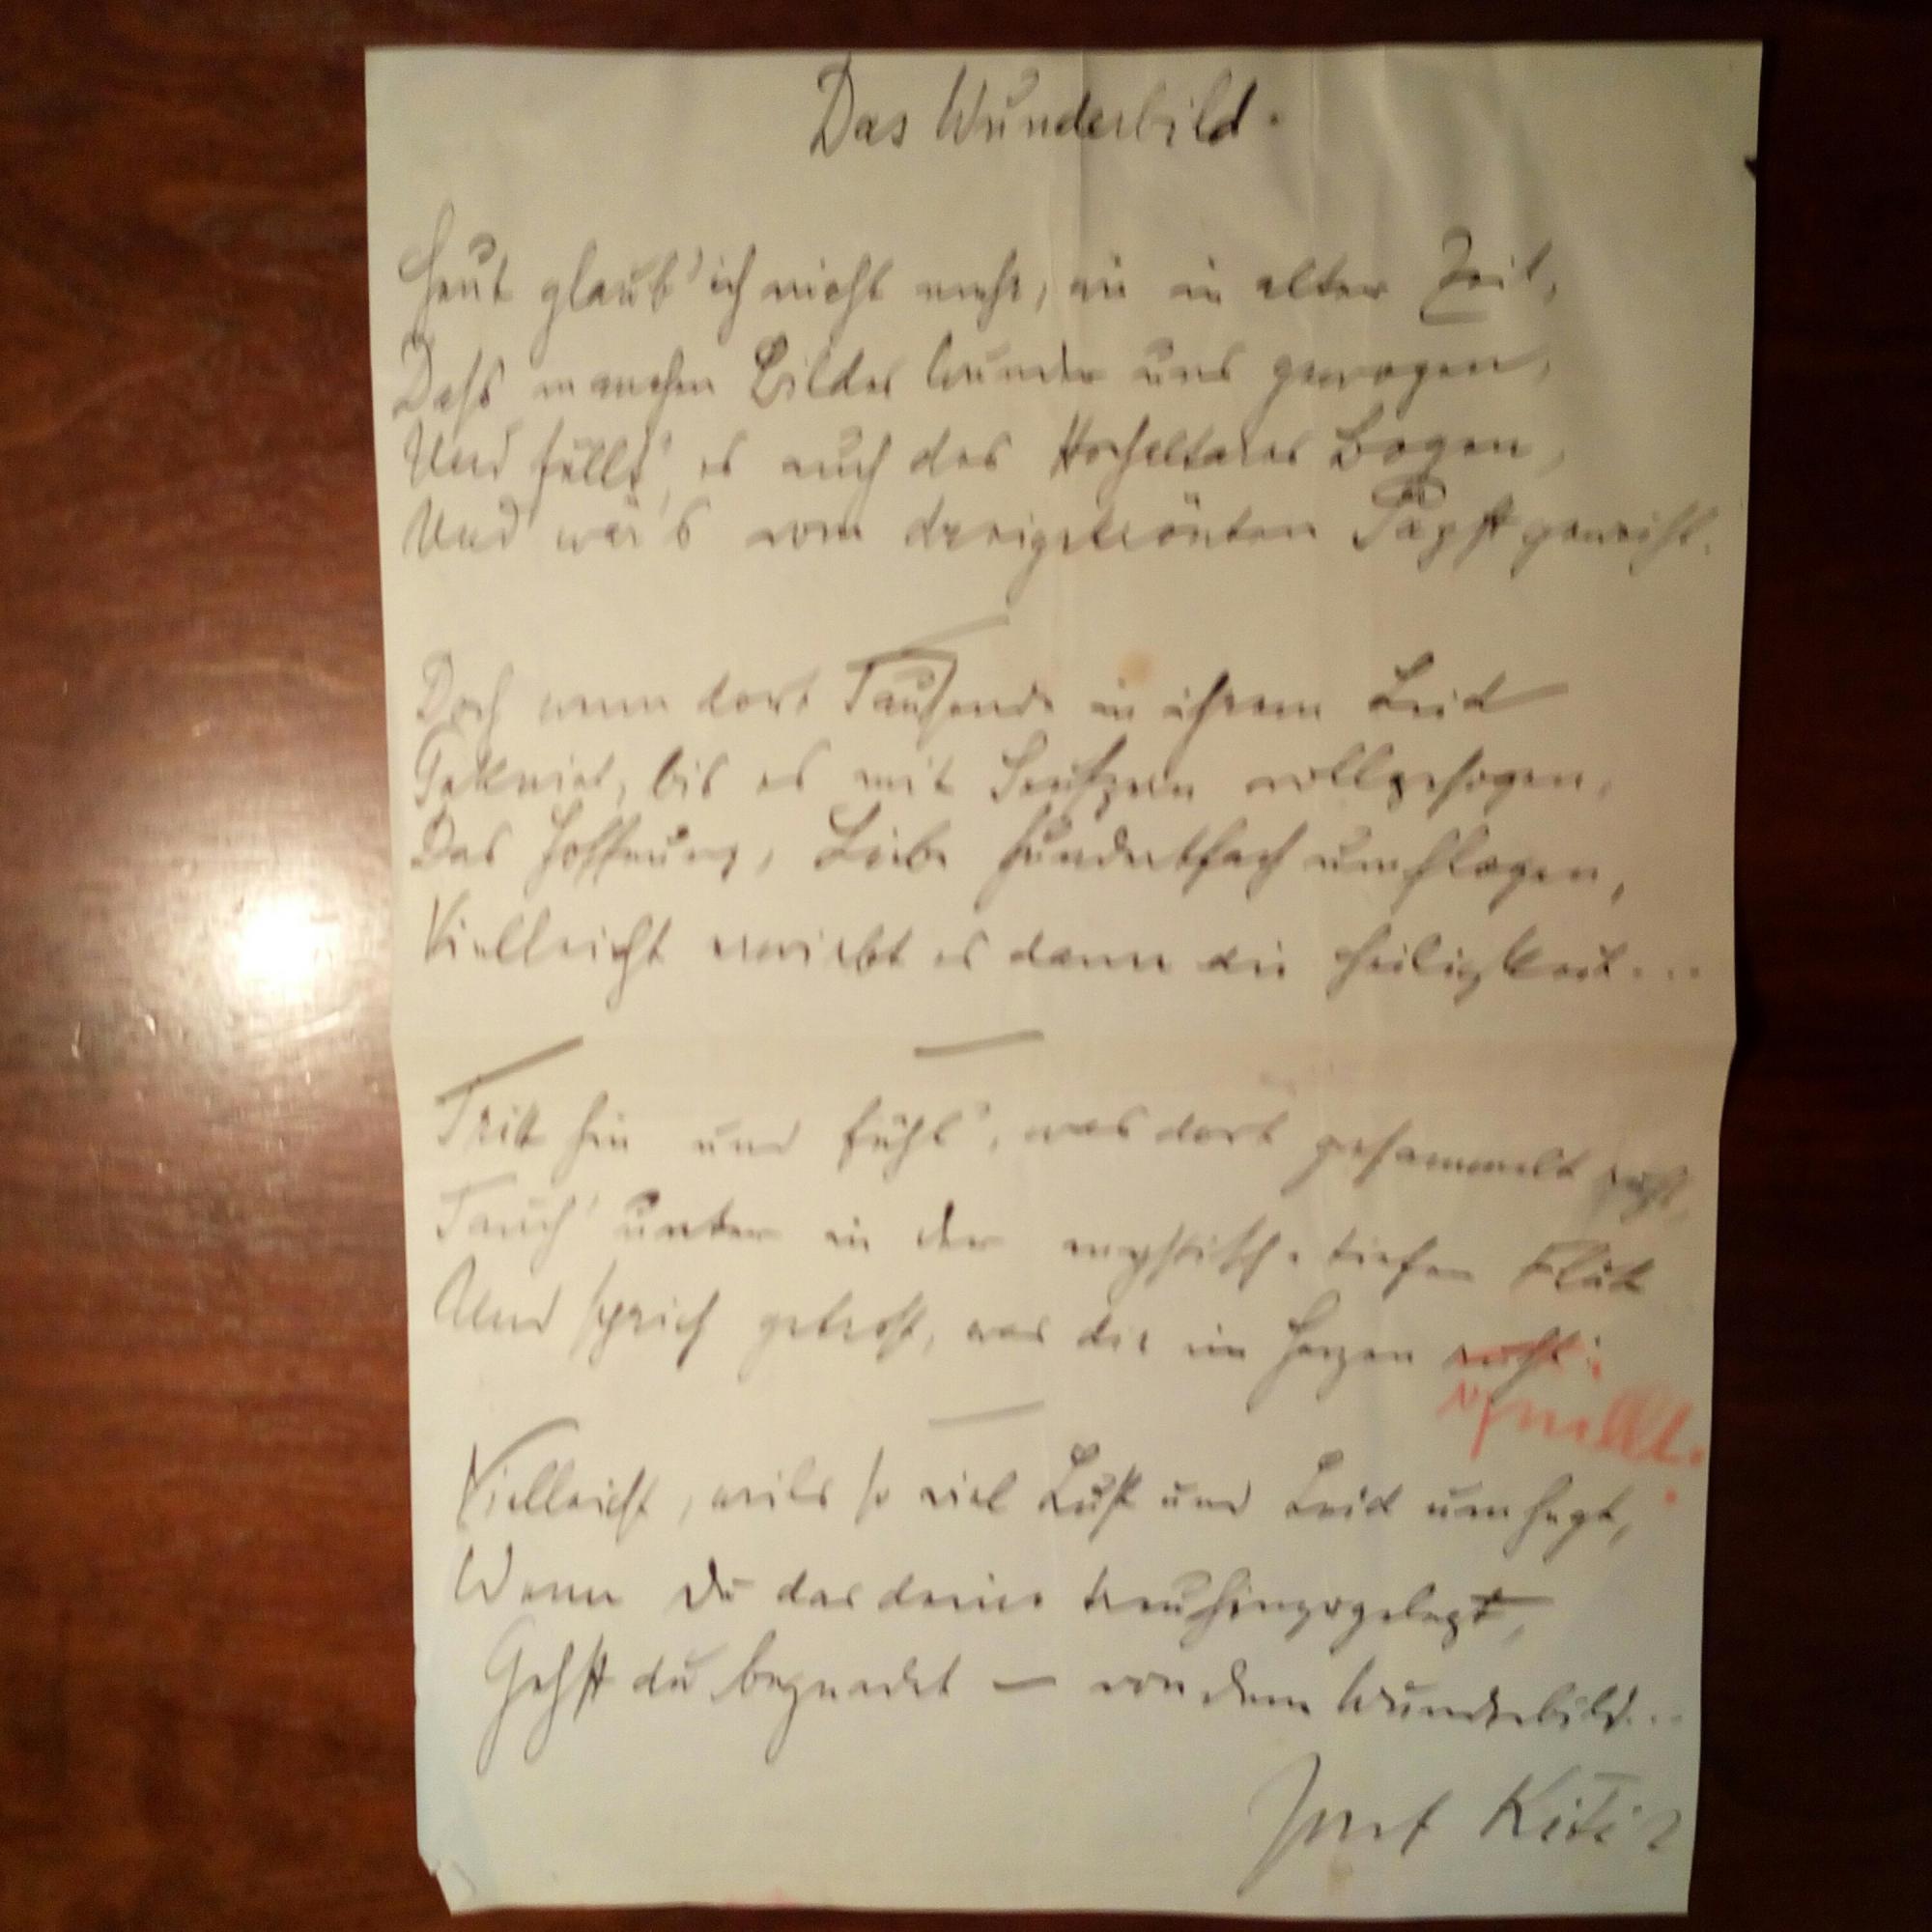 Das Wunderbild.
Heut glaub' ich nicht mehr, wie in alter Zeit,
Dass manchen Bildes Wunder uns gewogen,
Und füllt' es auch des Hochaltares Bogen,
Und wär's vom dreigekrönten Papst geweiht.
Doch wenn dort Tausende in ihrem Leid
Gekniet, bis es mit Seufzern vollgesogen,
Das Hoffnung, Liebe hundertfach umflogen,
Vielleicht erwirbt es dann die Heiligkeit...
Tritt hin und fühl', was dort gesammelt ruht,
Tauch' unter in der mystisch-tiefen Flut
Und sprich getrost, was dir im Herzen ruht:
quillt.
Vielleicht, weils so viel Lust und Leid umhegt,
Wenn du das deine treu hinzugelegt,
Gehst du begnadet — von dem Wunderbild...
Josef Kitir